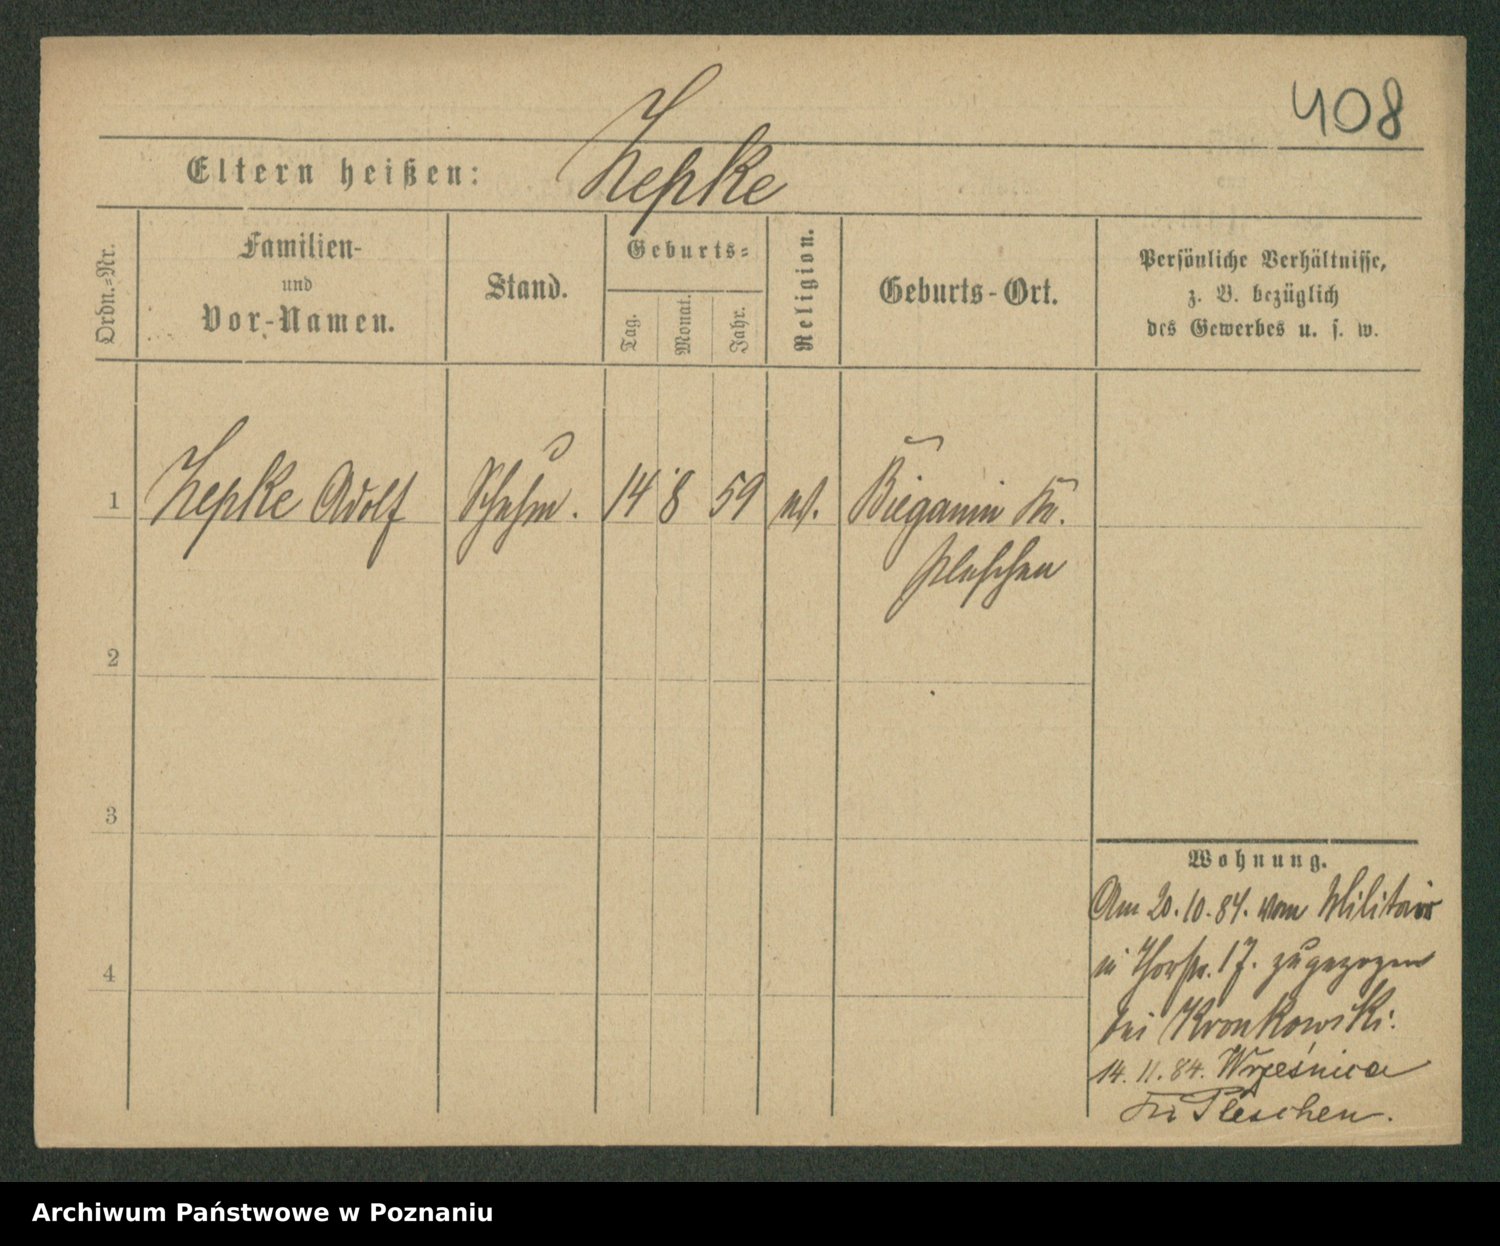 408
Eltern heißen: Hepke
Ordn.-Nr.
Familien-
und
Vor-Namen.
Stand.
Geburts-
Tag.
Monat.
Jahr.
Religion.
Geburts-Ort.
Persönliche Verhältnisse,
z. B. bezüglich
des Gewerbes u. s. w.
1 Hepke Adolf Schuhm. 14 8 59 Bieganin Kr.
Pleschen
2
3
4
Wohnung.
Am 20. 10. 84. vom Militair
in Thorstr. 17. zugezogen
bei Kronkowski.
14. 11. 84. Wrześnica
Kr. Pleschen.
Archiwum Państwowe w Poznaniu